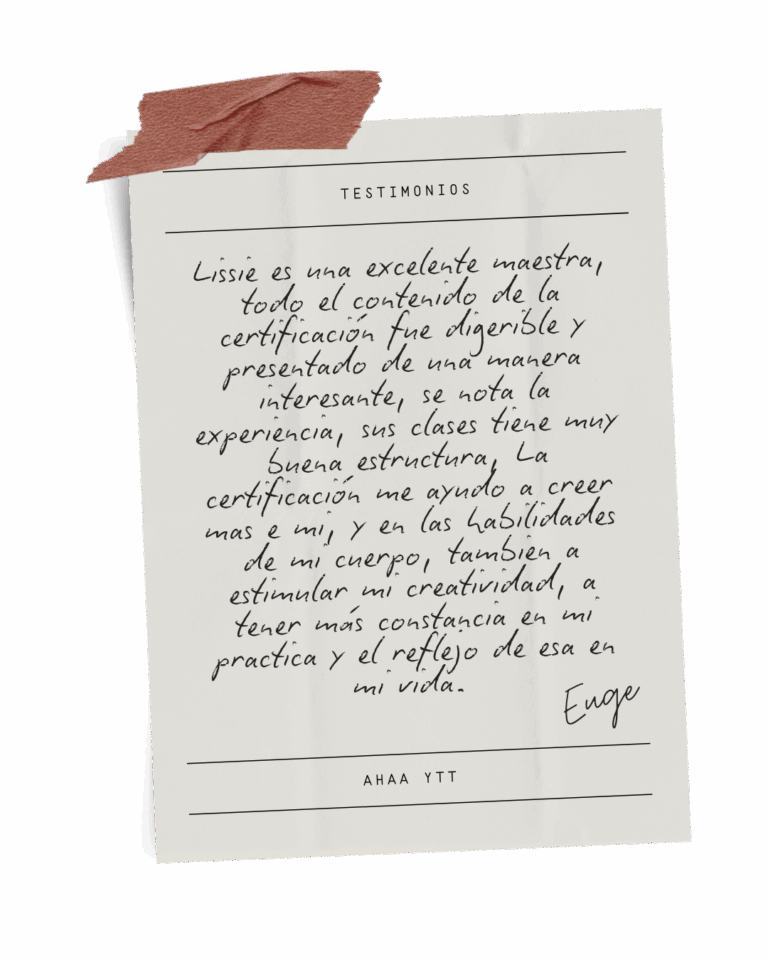 TESTIMONIOS
Lissie es una excelente maestra,
todo el contenido de la
certificación fue digerible y
presentado de una manera
interesante, se nota la
experiencia, sus clases tiene muy
buena estructura, La
certificación me ayudo a creer
mas e mi, y en las habilidades
de mi cuerpo, tambien a
estimular mi creatividad, a
tener más constancia en mi
practica y el reflejo de esa en
mi vida.
Euge
AHAA YTT